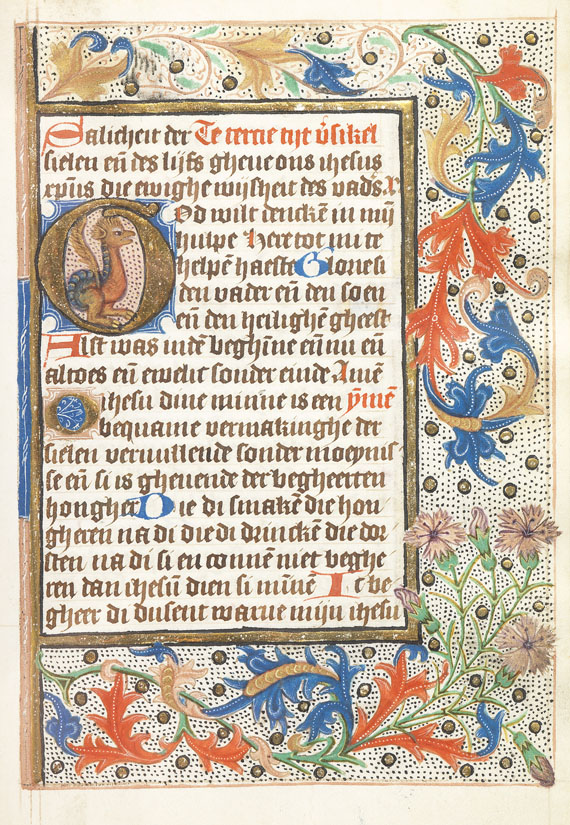 Salicheit der Te tercie tijt v̄sikel
sielen eñ des lijfs gheue ons ihesus
xp̄us die ewighe wijsheit des vad͛s
God wilt dencke̅ in mijn
hulpe Here tot mi te
helpe̅ haeste Glorie si
den vader eñ den soen
eñ den heilighe̅ gheest
Alst was inde̅ beghi̅ne eñ nu eñ
altoes eñ ewelic sonder einde Ame̅
ihesu dine minne is een ym̅e̅
bequame vermakinghe der
sielen veruullende sonder moeynis
se eñ si is gheuende der begheerten
hongher Die di smake̅ die hon
gheren na di die di drincke̅ die dor
sten na di si en conne̅ niet beghe
ren dan ihesu̅ dien si mi̅ne̅ Ic be
gheer di dusent warue mijn ihesu